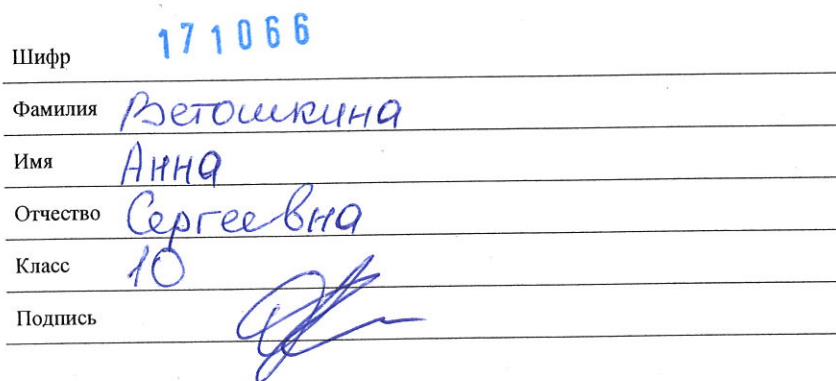 Шифр 171066
Фамилия Ветошкина
Имя Анна
Отчество Сергеевна
Класс 10
Подпись